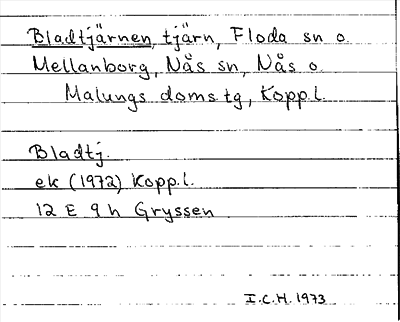 Bladtjärnen, tjärn, Floda sn o.
Mellanborg, Nås sn, Nås o.
Malungs doms.tg, Kopp.l.
Bladtj.
ek (1972) Kopp.l.
12 E 9 h Gryssen
I.C.H. 1973